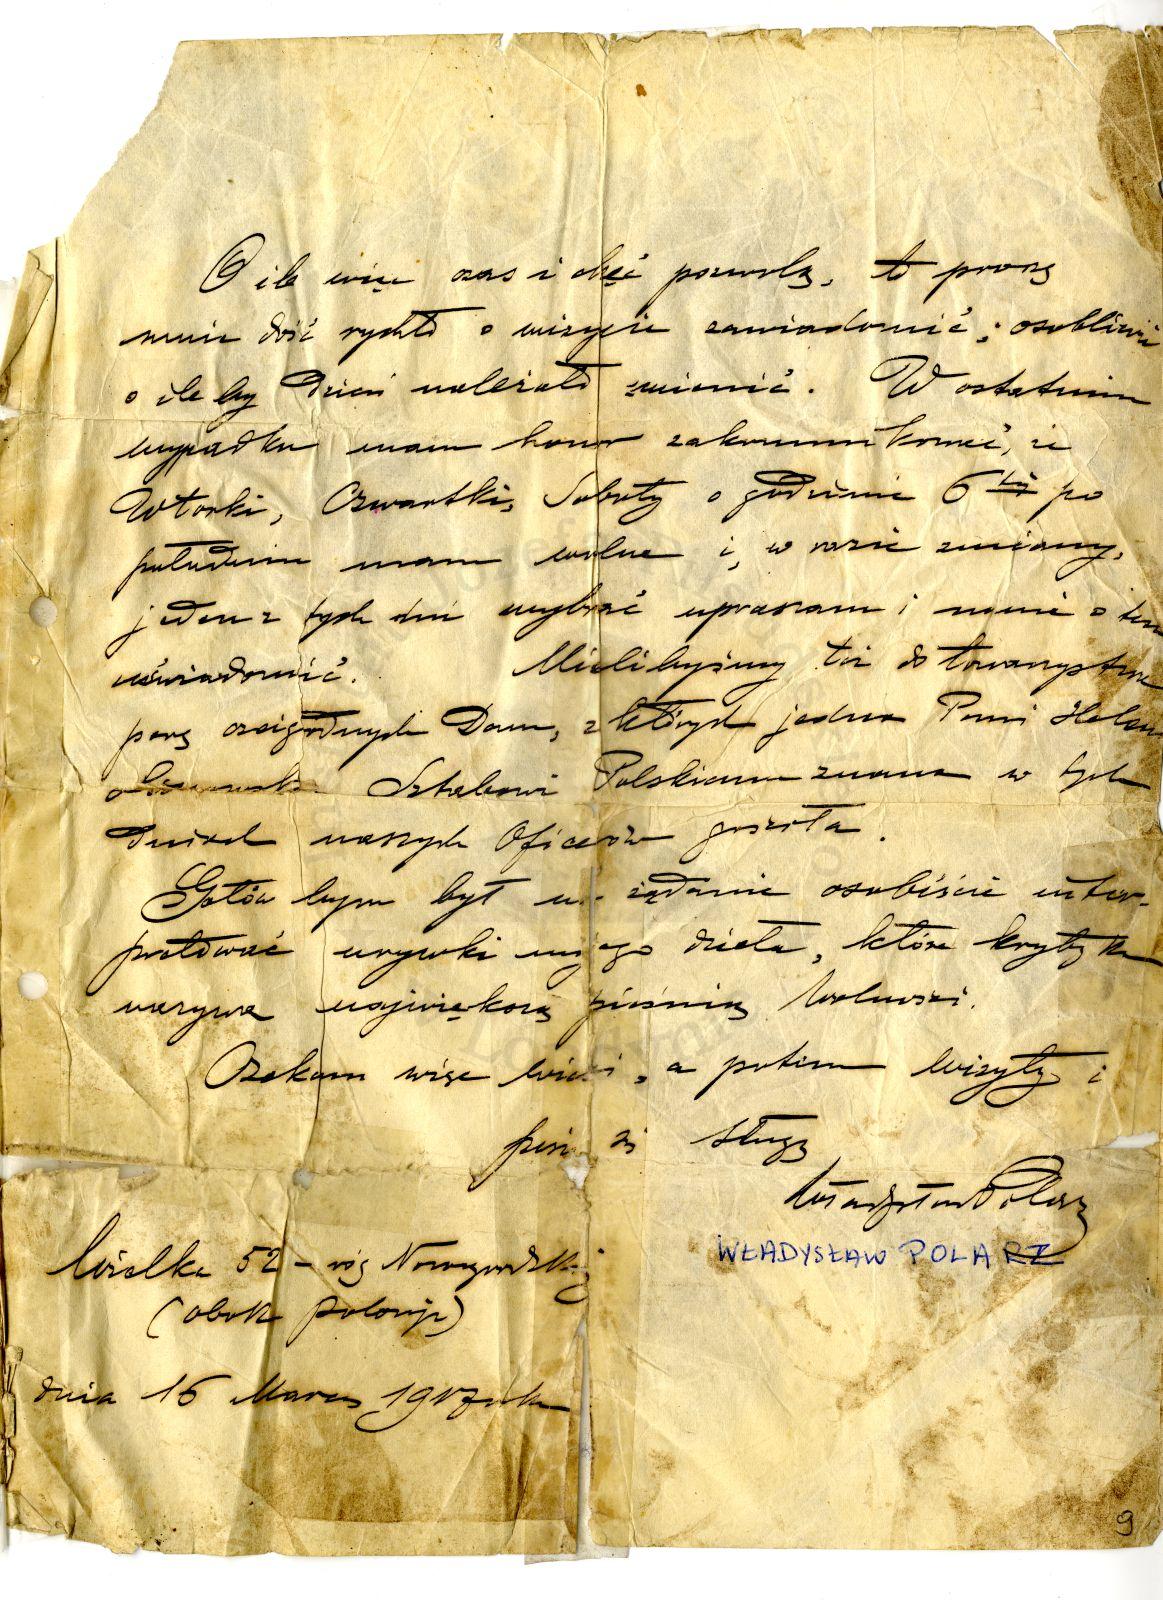 O ile więc czas i chęć pozwolą, to proszę
mnie dość rychło o wizycie zawiadomić; osobliwie
o ile by dzień należało zmienić. W ostatnim
wypadku mam honor zakomunikować, że
Wtorki, Czwartki, Soboty o godzinie 6 tej po
południu mam wolne i, w razie zmiany,
jeden z tych dni wybrać upraszam i mnie o tem
uświadomić. Mielibyśmy też do towarzystwa
parę czcigodnych Dam, z których jedna Pani
Sztabowi Polskiemu znana w tych
dniach naszych Oficerów gościła.
Gotów bym był na żądanie osobiście inter-
pretować urywki mojego dzieła, które krytyka
nazywa największą pieśnią
Czekam więc wieści, a potem wizyty i
piszę się sługą
Władysław Polarz
WŁADYSŁAW POLARZ
Wielka 52 - róg Nowogrodzkiej
(obok Polonji)
dnia 16 Marca roku
9